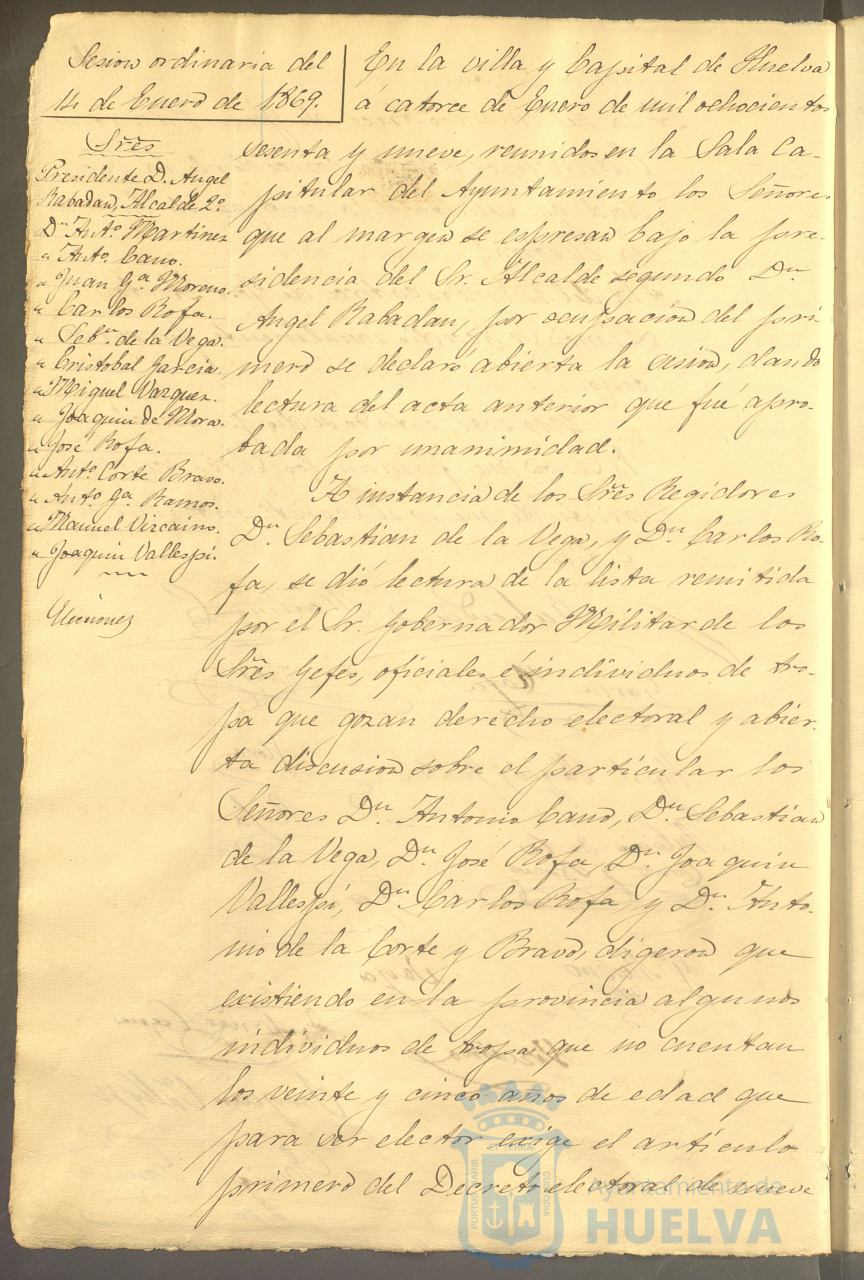 Sesion ordinaria del
14 de Enero de 1869.
Sres
Presidente D. Angel
Rabadan, Alcalde 2º
Dn Antº Martinez
" Antº Cano.
" Juan Gª Moreno.
" Carlos Rofa.
" Sebn de la Vega.
" Cristobal Garcia.
" Miguel Vazquez.
" Joaquin de Mora.
" José Rofa.
" Antº Corte Bravo.
" Antº Gª Ramos.
" Manuel Vizcaino.
" Joaquin Vallespi.
Elecciones
En la villa y Capital de Huelva
á catorce de Enero de mil ochocientos
sesenta y nueve, reunidos en la Sala Ca-
pitular del Ayuntamiento los Señores
que al margen se espresan bajo la pre-
sidencia del Sr. Alcalde segundo Dn
Angel Rabadan, por ocupacion del pri-
mero se declaró abierta la cesion, dando
lectura del acta anterior que fué apro-
bada por unanimidad.
A instancia de los Sres Regidores
Dn Sebastian de la Vega, y Dn Carlos Ro-
fa, se dió lectura de la lista remitida
por el Sr. Gobernador Militar de los
Sres Gefes, oficiales é individuos de tro-
pa que gozan derecho electoral y abier-
ta discusion sobre el particular los
Señores Dn Antonio Cano, Dn Sebastian
de la Vega, Dn José Rofa, Dn Joaquin
Vallespí, Dn Carlos Rofa, y Dn Anto-
nio de la Corte y Bravo, digeron que
existiendo en la provincia algunos
individuos de tropa que no cuentan
los veinte y cinco años de edad que
para ser elector exige el artículo
primero del Decreto electoral de nueve
Ayuntamiento de
HUELVA